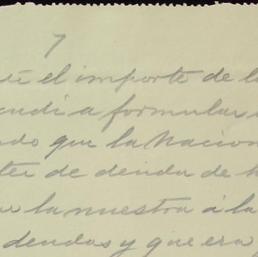 7
el importe de l
a formular
do que la Nacion
ter de deuda de h
la nuestra á la
deudas y que era